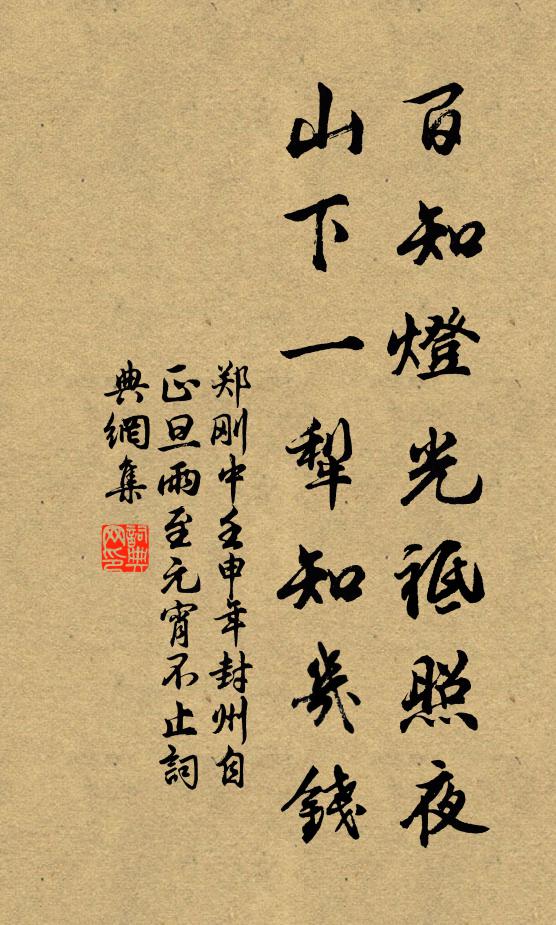 百知燈光祗照夜
山下一犁知幾錢
郑刚中壬申年封州自
正旦雨至元宵不止詞
典網集
詞典
网印